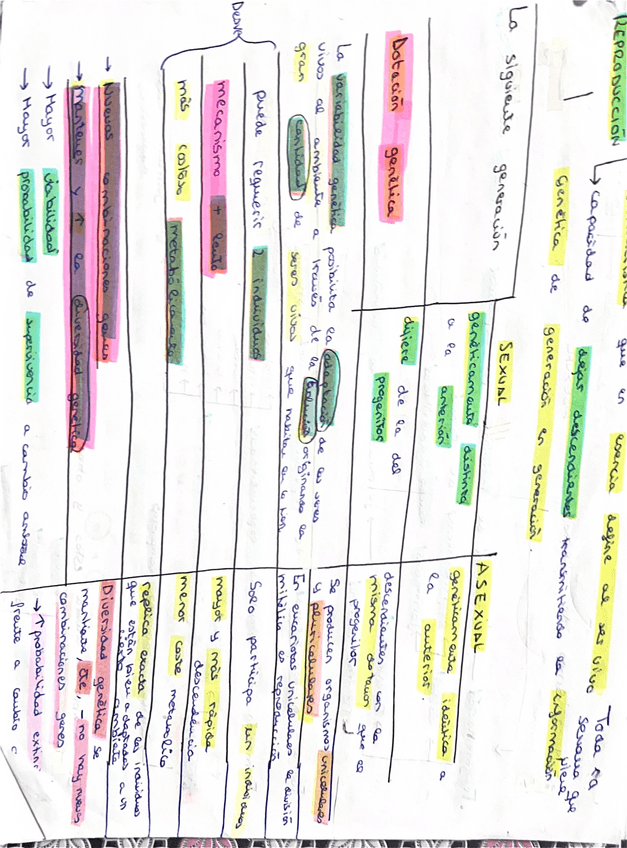 REPRODUCCIÓN
que en esencia define al ser vivo
→ Capacidad de dejar descendientes transmitiendo la información
Genética de generación en generación.
Toda ra
sexual que
viene
SEXUAL
ASEXUAL
La siguiente generación
genéticamente distinta
a la anterior
genéticamente idéntica a
la anterior.
Dotación genética
difiere de la del
progenitor
descendientes con la
misma dotación que el
progenitor
La variabilidad genética posibilita la adaptación de los seres
vivos al ambiente a través de la evolución originando la
gran cantidad de seres vivos que habitan en la
Se producen organismos unicelulares
y pluricelulares
En eucariotas unicelulares la división
mitótica es reproducción
Desven
puede requerir 2 individuos
Solo participa un individuo
mecanismo + lento
mayor y más rápida
descendencia
más costoso metabólicamente
menor coste metabólico
replica exacta de los individuos
que están bien adaptados a un
cierto ambiente
→ Nuevas combinaciones genes
→ Mantener y ↑ la diversidad genética
Diversidad genética se
mantiene, - no hay nuevas
combinaciones genes
→ Mayor viabilidad
→ Mayor probabilidad de supervivencia a cambio ambiente
→ ↑ probabilidad extin
frente a cambio